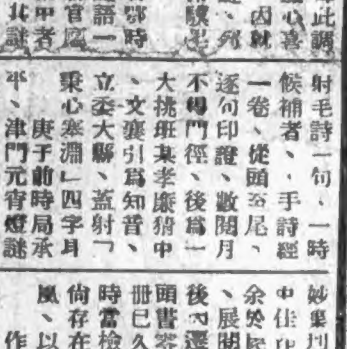 此調
心喜
因就
、列
鄂時
語一
官廳
中者
其謎
射毛詩一句、一時
候補者、手詩經
一卷、從頭至尾、
逐句印證、數閱月
不得門徑、後爲一
大挑班某孝廉猜中
、文襄引爲知音、
立委大縣、蓋射「
秉心塞淵」四字耳
庚子前時局承
平、津門元宵燈謎
妙集刊
中佳
余於
、展閱
後內還
頭書
冊已久
時當檢
尙存在
風、以
作